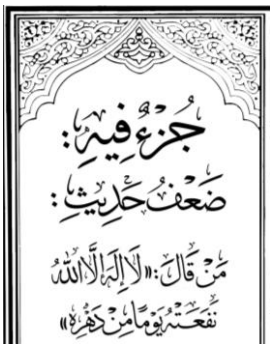 جُزْءٌ فِيهِ:
ضَعْفُ حَدِيثِ:
مَنْ قَالَ: «لَا إِلَهَ إِلَّا اللهُ
نَفَعَتْهُ يَوْمًا مِنْ دَهْرِهِ»